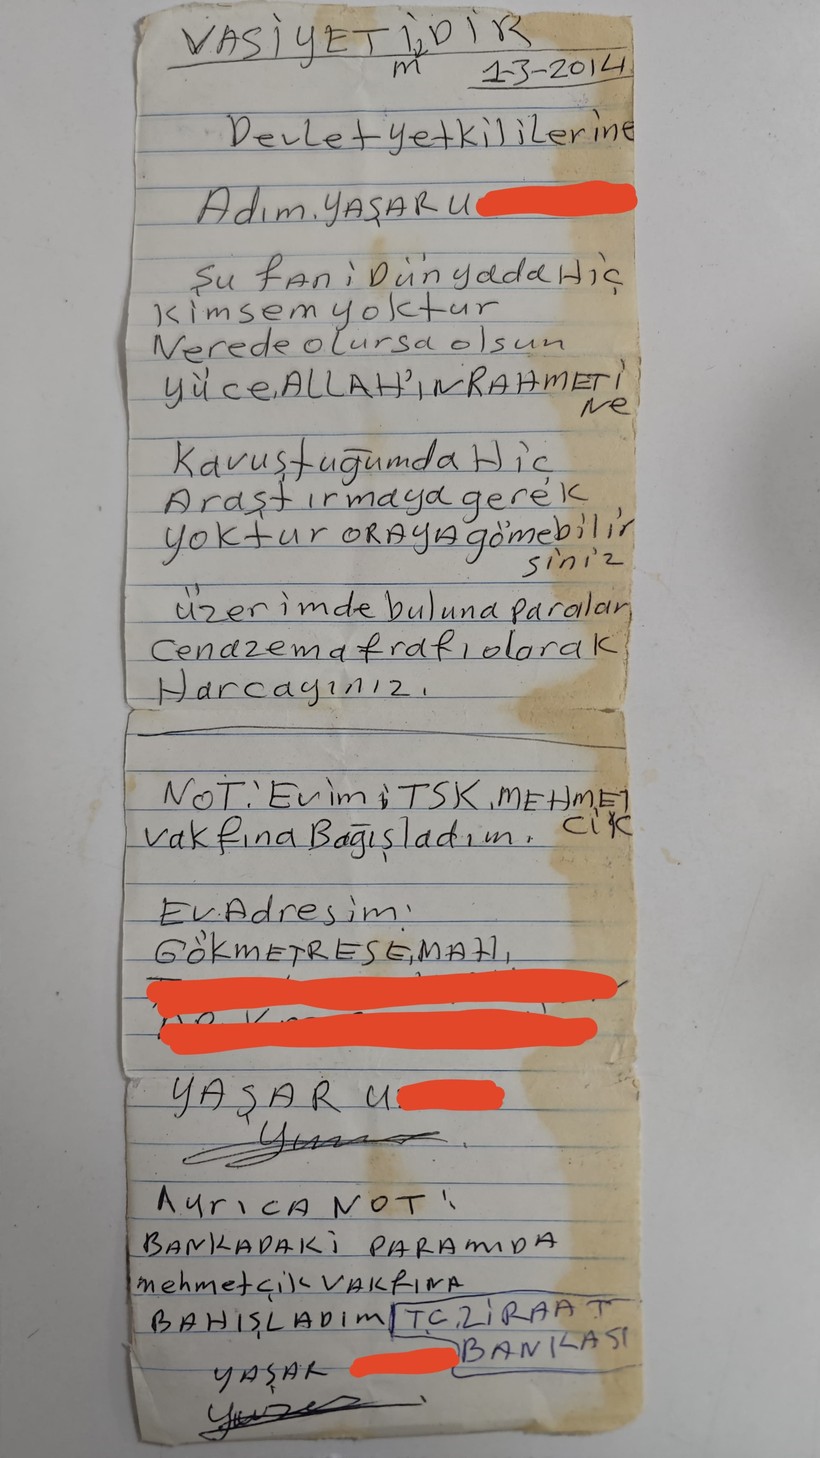 VASİYETİMDİR
1-3-2014
Devlet yetkililerine
Adım. YAŞAR U
Şu fAni Dünyada Hiç
Kimsem yoktur
Nerede olursa olsun
yüce, ALLAH'IN RAHMETİ
Ne
Kavuştuğumda Hiç
Araştırmaya gerek
yoktur ORAYA gömebilir
siniz
üzerimde buluna paralar
Cenazemafrafı olarak
Harcayınız.
NOT: Evimi TSK, MEHMET
CİK
vakfına Bağışladım.
Ev Adresim:
GÖKMETRESE, MAH,
YAŞAR U.
AyrıCA NOT:
BANKADAKİ PARAMIDA
mehmetçik VAKfINA
BAHIŞLADIM TC, ZİRAAT
BANKASI
YAŞAR